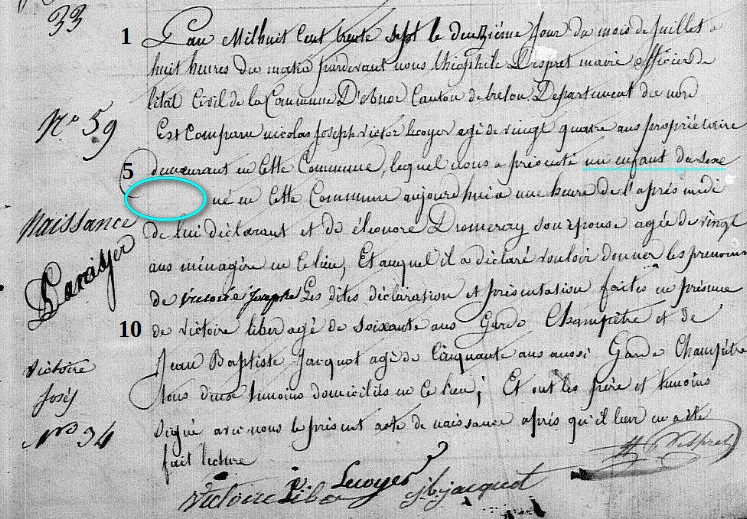 33
1
L'an Mil huit Cent trente sept le deuzième jour du mois de juillet a
huit heures du matin pardevant nous théophile Despret maire officier de
l'état Civil de la Commune D'obnor Canton de trélon Departement du nord
N° 59
Est Comparu nicolas joseph victor lecoyer agé de vingt quatre ans propriétaire
5
demeurant en Cette Commune, lequel nous a présenté un enfant du sexe
né en Cette Commune aujourd'hui a une heure de l'après midi
Naissance
de lui déclarant et de éléonore Dromeray son épouse agée de vingt
ans ménagère en ce lieu, Et auquel il a déclaré vouloir donner les prenoms
de victoire josephe Les dites déclaration et présentation faites en présence
10
de victoire liber agé de soixante ans Garde Champêtre et de
Jean Baptiste Jacquot agé de Cinquante ans aussi Garde Champêtre
victoire
josép
tous deux temoins domiciliés en ce lieu; Et ont les père et temoins
N° 34
signé avec nous le présent acte de naissance après qu'il leur en a été
fait lecture
victoire Liber Lecoyer j.b. jacquot Despret